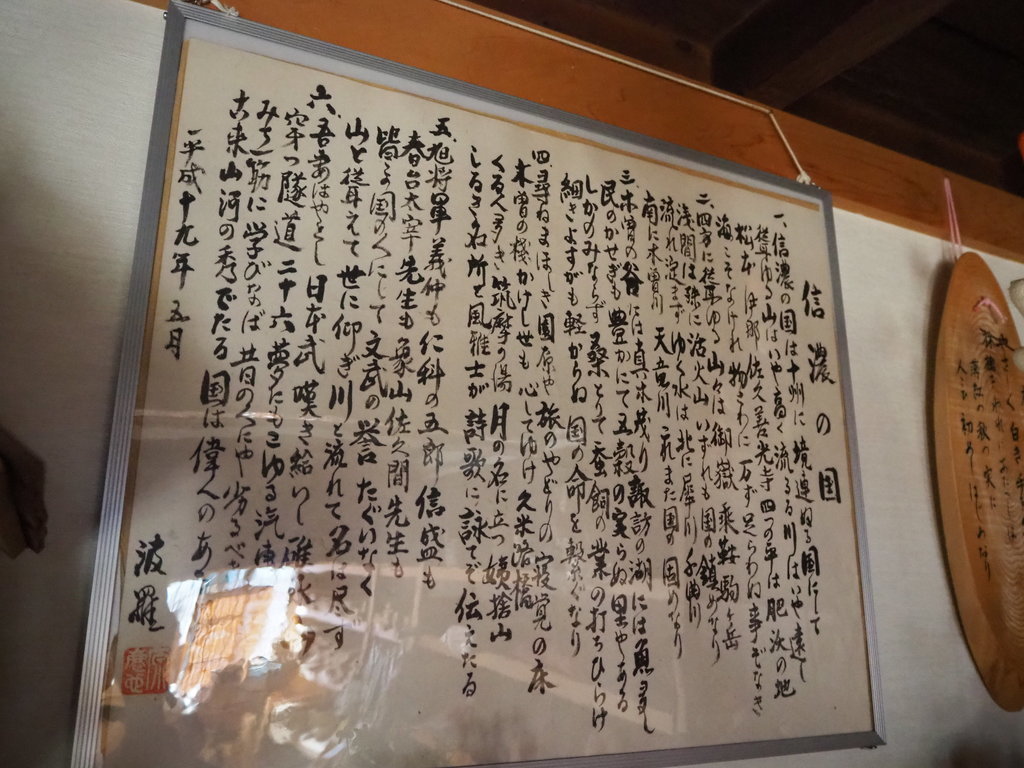 信濃の国
一、信濃の国は十州に 境連ぬる国にして
聳ゆる山はいや高く 流るる川はいや遠し
松本 伊那 佐久 善光寺 四つの平は肥沃の地
海こそなけれ物さわに 万ず足らわぬ事ぞなき
二、四方に聳ゆる山々は 御嶽 乗鞍 駒ヶ岳
浅間は殊に活火山 いずれも国の鎮めなり
流れ淀まずゆく水は 北に犀川 千曲川
南に木曽川 天竜川 これまた国の固めなり
三、木曽の谷には真木茂り 諏訪の湖には魚多し
民のかせぎも豊かにて 五穀の実らぬ里やある
しかのみならず桑とりて 蚕飼の業の打ちひらけ
細きよすがも軽からぬ 国の命を繋ぐなり
四、尋ねまほしき園原や 旅のやどりの寝覚の床
木曽の棧かけし世も 心してゆけ久米路橋
くる人多き筑摩の湯 月の名に立つ姨捨山
しるき名所と風雅士が 詩歌に詠てぞ伝えたる
五、旭将軍義仲も 仁科の五郎信盛も
春台太宰先生も 象山佐久間先生も
皆この国の人にして 文武の誉たぐいなく
山と聳えて世に仰ぎ 川と流れて名は尽ず
六、吾妻はやとし 日本武 嘆き給いし碓氷
穿つ隧道二十六 夢にもこゆる汽車
みち一筋に学びなば 昔の人にや劣るべき
古来山河の秀でたる 国は偉人のある
平成十九年 五月
波羅
白き手
林檎をわれにあた
薄紅の秋の実に
人こひ初めしはじめなり